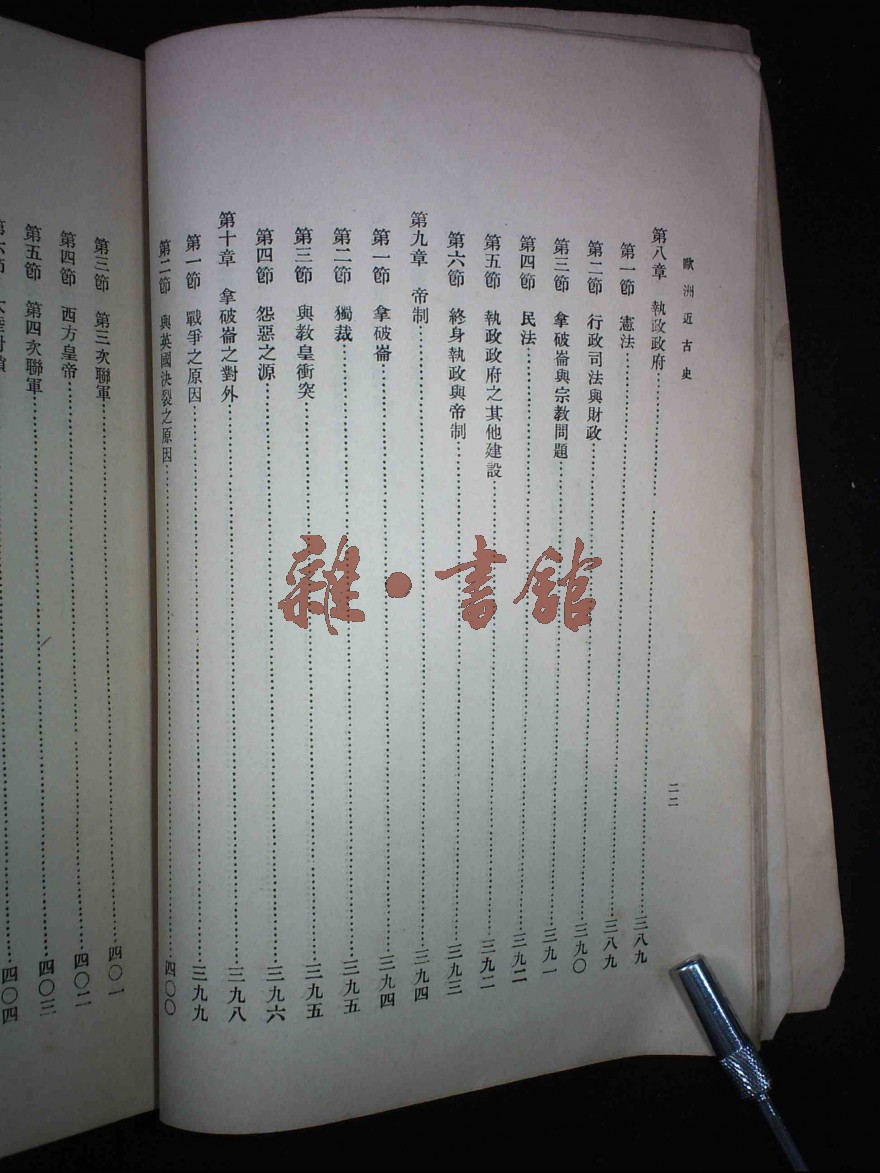 歐洲近古史
二二
第八章 執政政府……三八九
第一節 憲法……三八九
第二節 行政司法與財政……三九〇
第三節 拿破崙與宗教問題……三九一
第四節 民法……三九二
第五節 執政政府之其他建設……三九二
第六節 終身執政與帝制……三九三
第九章 帝制……三九四
第一節 拿破崙……三九四
第二節 獨裁……三九五
第三節 與教皇衝突……三九五
第四節 怨惡之源……三九六
第十章 拿破崙之對外……三九八
第一節 戰爭之原因……三九九
第二節 與英國決裂之原因……四〇〇
第三節 第三次聯軍……四〇一
第四節 西方皇帝……四〇二
第五節 第四次聯軍……四〇三
第六節……四〇四
雜·書館